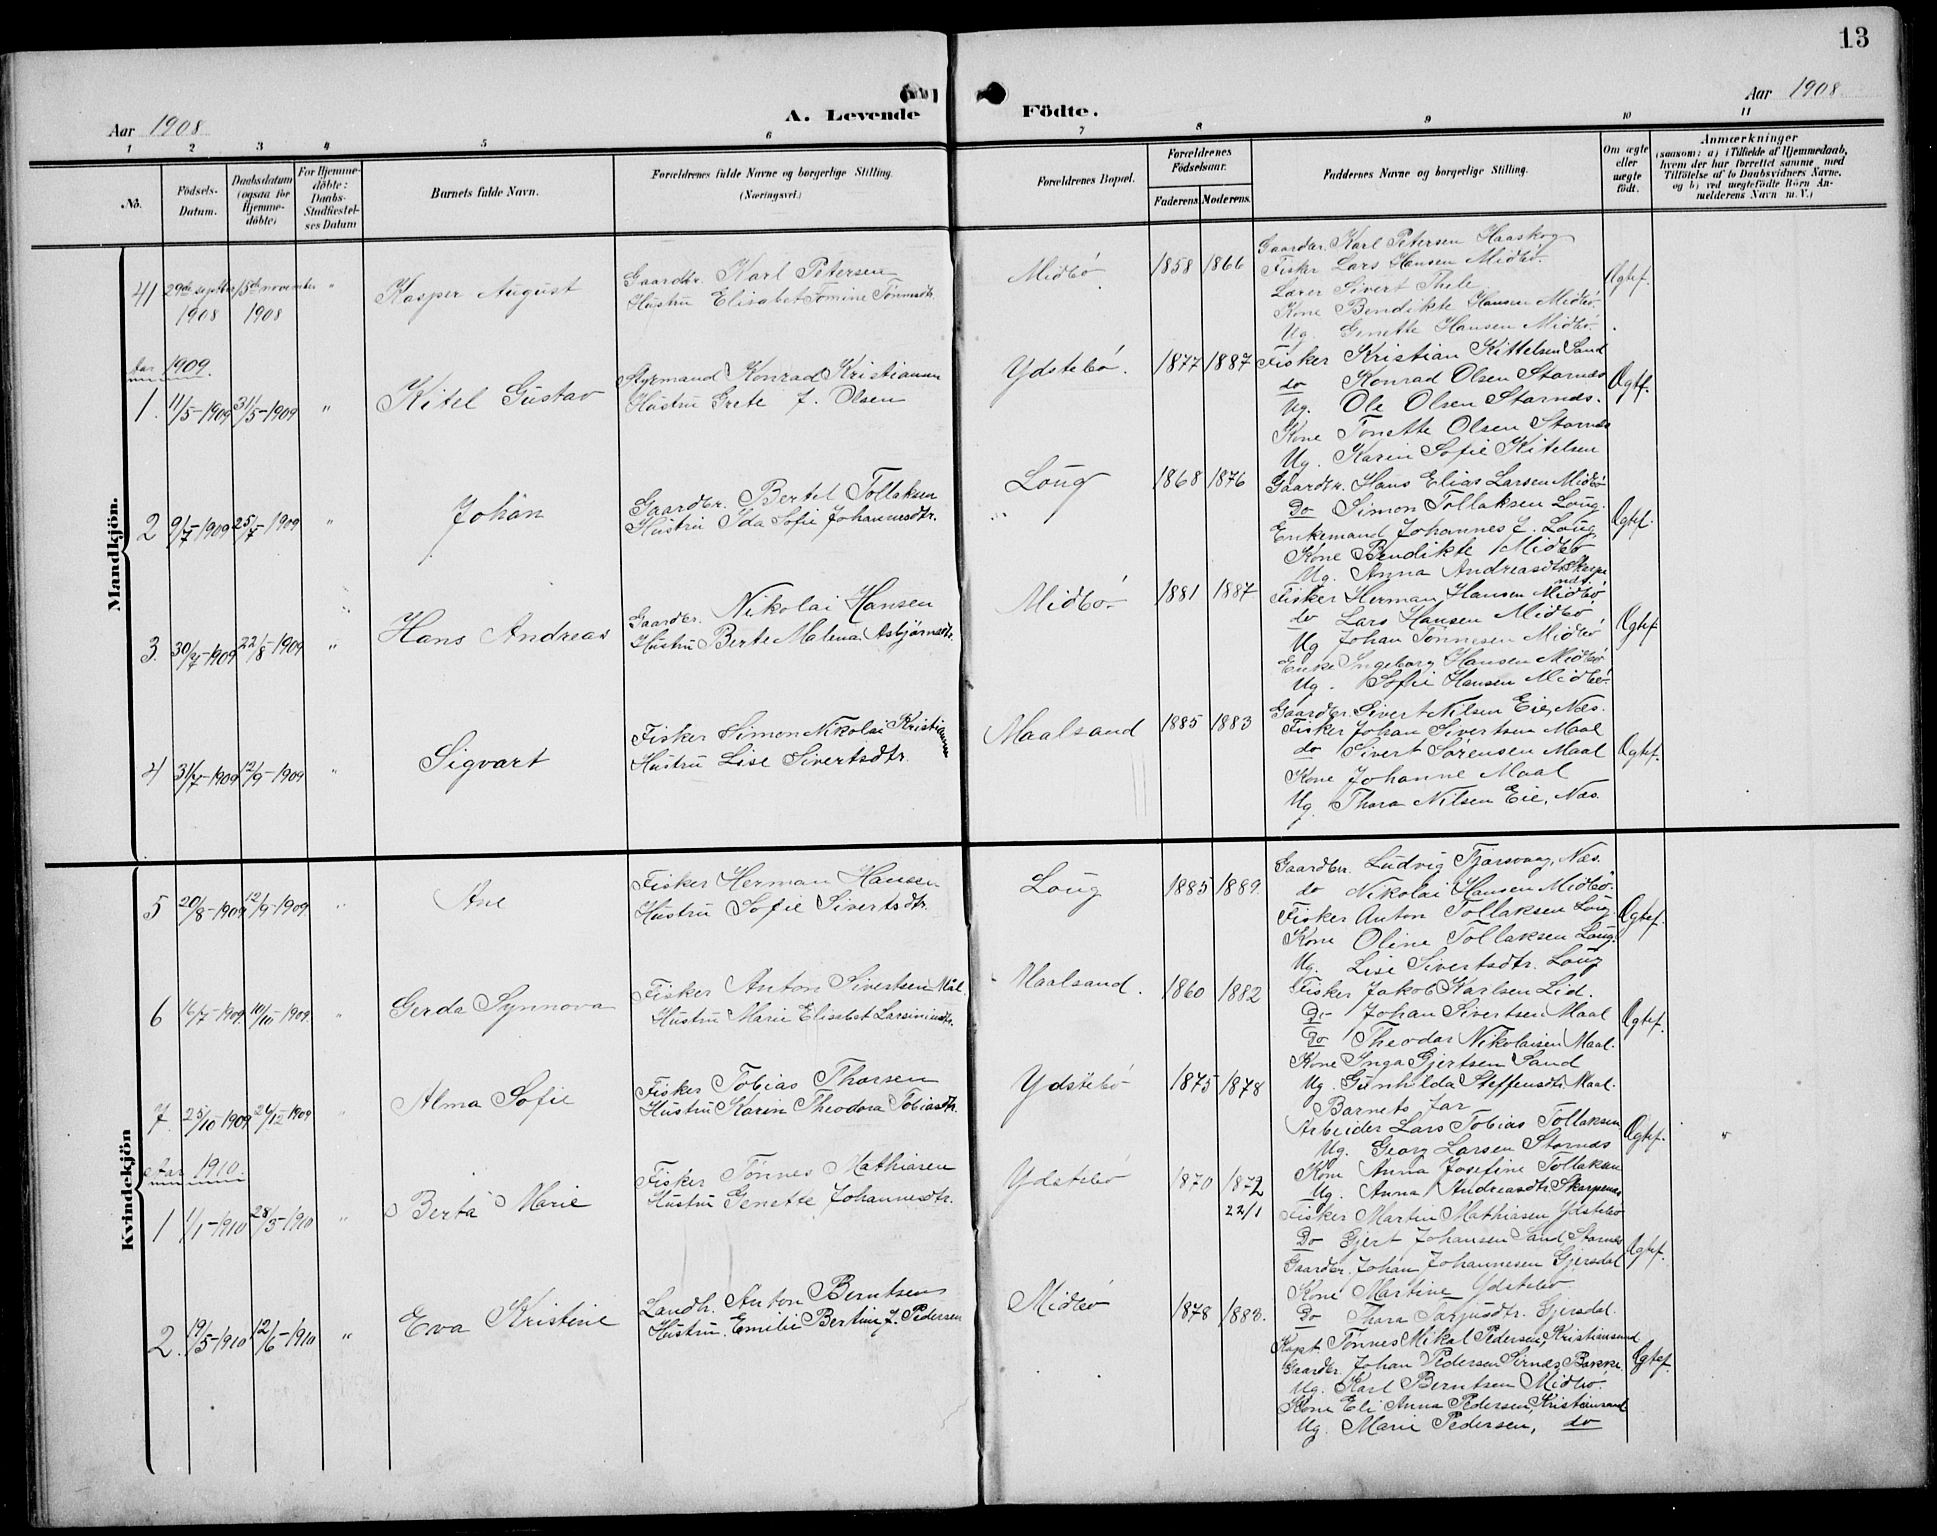 13
Aar 1908
A. Levende Födte.
Aar 1908
1 2 3 4 5 6 7 8 9 10 11
No.
Födsels-
Datum.
Daabsdatum
(ogsaa for
Hjemme-
döbte)
For Hjemme-
döbte:
Daabs-
Stadfæstel-
ses Datum
Barnets fulde Navn.
Forældrenes fulde Navne og borgerlige Stilling.
(Næringsvei.)
Forældrenes Bopæl.
Forældrenes
Födselsaar.
Faderens. Moderens.
Faddernes Navne og borgerlige Stilling.
Om ægte
eller
uægte
födt.
Anmærkninger
(saasom: a) i Tilfælde af Hjemmedaab,
hvem der har forrettet samme, med
Tilföielse af to Daabsvidners Navne,
og b) ved uægtefödte Börn An-
melderens Navn m. V.)
Mandkjön.
41 29de septbr 15de november "
1908 1908
Kasper August
Gaardbr. Karl Petersen
Hustru Elisabet Tomine Tønnesdtr.
Midbö
1858 1866
Gaardbr. Karl Petersen Haaskog
Fisker Lars Hansen Midbö.
Lærer Sivert Thele
Kone Bendikte Hansen Midbö.
Ug. Genette Hansen Midbö.
Ægtef.
Aar 1909.
1. 11/5-1909 31/5-1909 "
Kitel Gustav
Styrmand Konrad Kristiansen
Hustru Grete J. Olsen
Ydstebö.
1877 1887
Fisker Kristian Kittelsen Sand
do Konrad Olsen Stornæs
Ug. Ole Olsen Stornæs.
Kone Tonette Olsen Stornæs
Ug. Karin Sofie Kitelsen
Ægtf.
2 9/7-1909 25/7-1909 "
Johan
Gaardbr. Bertel Tollaksen
Hustru Ida Sofie Johannesdtr.
Loug
1868 1876
Gaardbr. Hans Elias Larsen Midbö
Do Simon Tollaksen Loug.
Enkemand Johannes J. Loug
Kone Bendikte Midbö
Ug. Anna Andreasdtr. Skarpe
næs.
Ægtef.
3. 30/7-1909 22/8-1909 "
Hans Andreas
Gaardbr. Nikolai Hansen
Hustru Berte Malena Asbjørnsdtr.
Midbö
1881 1887
Fisker Herman Hansen Midbö
do Lars Hansen Midbö
Ug Johan Tønnesen Midbö
Enke Ingeborg Hansen Midbö
Ug. Sofie Hansen Midbö.
Ægtef
4 31/7-1909 12/9-1909 "
Sigvart
Fisker Simon Nikolai Kristiansen
Hustru Lise Sivertsdtr.
Maalsand
1885 1883
Gaardbr. Sivert Nilsen Eie, Næs.
Fisker Johan Sivertsen Maal
do Sivert Sørensen Maal
Kone Johanne Maal
Ug. Thora Nilsen Eie, Næs.
Ægtef.
Kvindekjön
5 20/8-1909 12/9-1909. "
Ane
Fisker Herman Hansen
Hustru Sofie Sivertsdtr.
Loug
1885 1889.
Gaardbr. Ludvig Tjørsvaag, Næs.
do Nikolai Hansen Midbö.
Fisker Anton Tollaksen Loug.
Kone Oline Tollaksen Loug.
Ug. Lise Sivertsdtr. Loug
Ægtef.
6 16/7-1909. 10/10-1909. "
Gerda Synnova
Fisker Anton Sivertsen Mål.
Hustru Marie Elisabet
Maalsand.
1860 1882
Fisker Jakob Karlsen Lid.
Do Johan Sivertsen Maal
Do Theodor Nikolaisen Maal.
Kone Inga Gjertsen Sand
Ug. Gunhilda Steffensdtr. Maal.
Ægtef.
7. 25/10-1909 26/12-1909 "
Alma Sofie
Fisker Tobias Thorsen
Hustru Karin Theodora Tobiasdtr.
Ydstebö
1875 1878
Barnets Far
Arbeider Lars Tobias Tollaksen
Ug. Georg Larsen Stornæs
Kone Anna Josefine Tollaksen
Ug. Anna Andreasdtr. Skarpenæs
Ægtef.
Aar 1910.
1 1/1-1910 28/3-1910 "
Berta Marie
Fisker Tønnes Mathiasen
Hustru Genette Johannesdtr.
Ydstebö
1870 1872
22/1
Fisker Martin Mathiasen Ydstebö
Do Gjert Johansen Sand, Stornæs
Gaardbr. Johan Johannesen Gjersdal
Kone Martine Ydstebö
Do Thora Tarjusdtr. Gjersdal.
Ægtef.
2. 19/5-1910 12/6-1910 "
Eva Kristine
Landh. Anton Berntsen
Hustru. Emilie Bertine J. Pedersen
Midbö
1878 1883.
Kapt. Tønnes Mikal Pedersen, Kristiansand
Gaardbr. Johan Pedersen Sirnæs, Bakke.
Ug. Karl Berntsen Midbö.
Kone Eli Anna Pedersen, Kristiansand
Ug. Marie Pedersen, do
Ægtef.